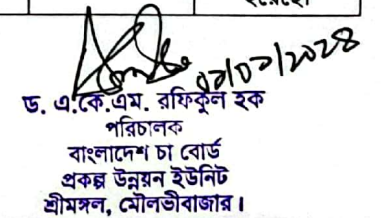 হয়েছে।
০১/০১/২০২৪
ড. এ.কে.এম. রফিকুল হক
পরিচালক
বাংলাদেশ চা বোর্ড
প্রকল্প উন্নয়ন ইউনিট
শ্রীমঙ্গল, মৌলভীবাজার।